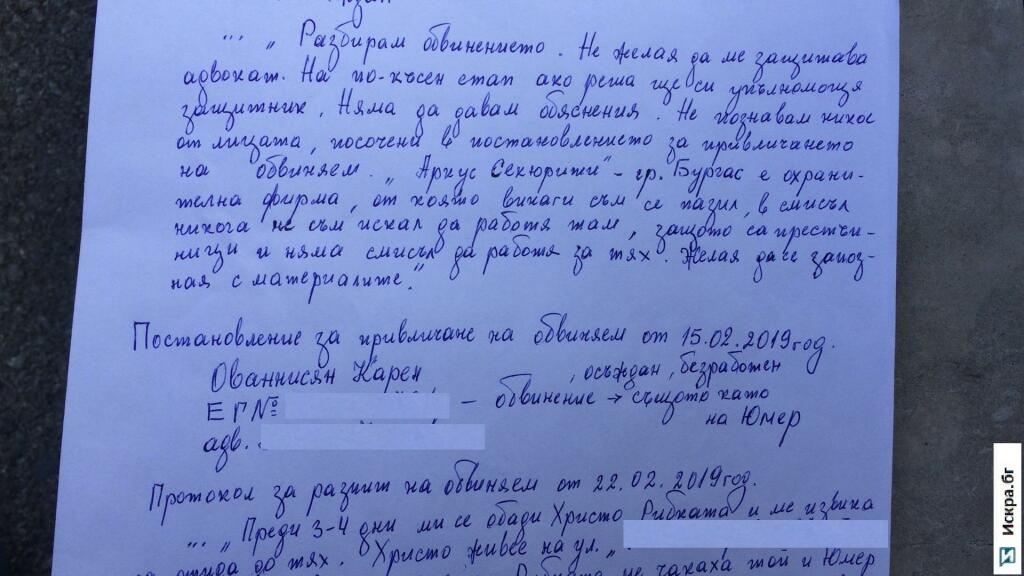 ... „Разбирам обвинението. Не желая да ме защитава
адвокат. На по-късен етап ако реша ще си упълномощя
защитник. Няма да давам обяснения. Не познавам никое
от лицата, посочени в постановлението за привличането
на обвиняем. „Аркус Секюрити" - гр. Бургас е охрани-
телна фирма, от която винаги съм се пазил, в смисъл
никога не съм искал да работя там, защото са престъп-
ници и няма смисъл да работя за тях. Желая да се запоз-
ная с материалите."
Постановление за привличане на обвиняем от 15.02.2019 год.
Ованнисян Карен, , осъждан, безработен
ЕГ№ — обвинение → същото като
на Юмер
адв.
Протокол за разпит на обвиняем от 22.02.2019 год.
... „Преди 3-4 дни ми се обади Христо Рибката и ме извика
да отида до тях. Христо живее на ул. „
не чакаха той и Юмер
Искра.бг